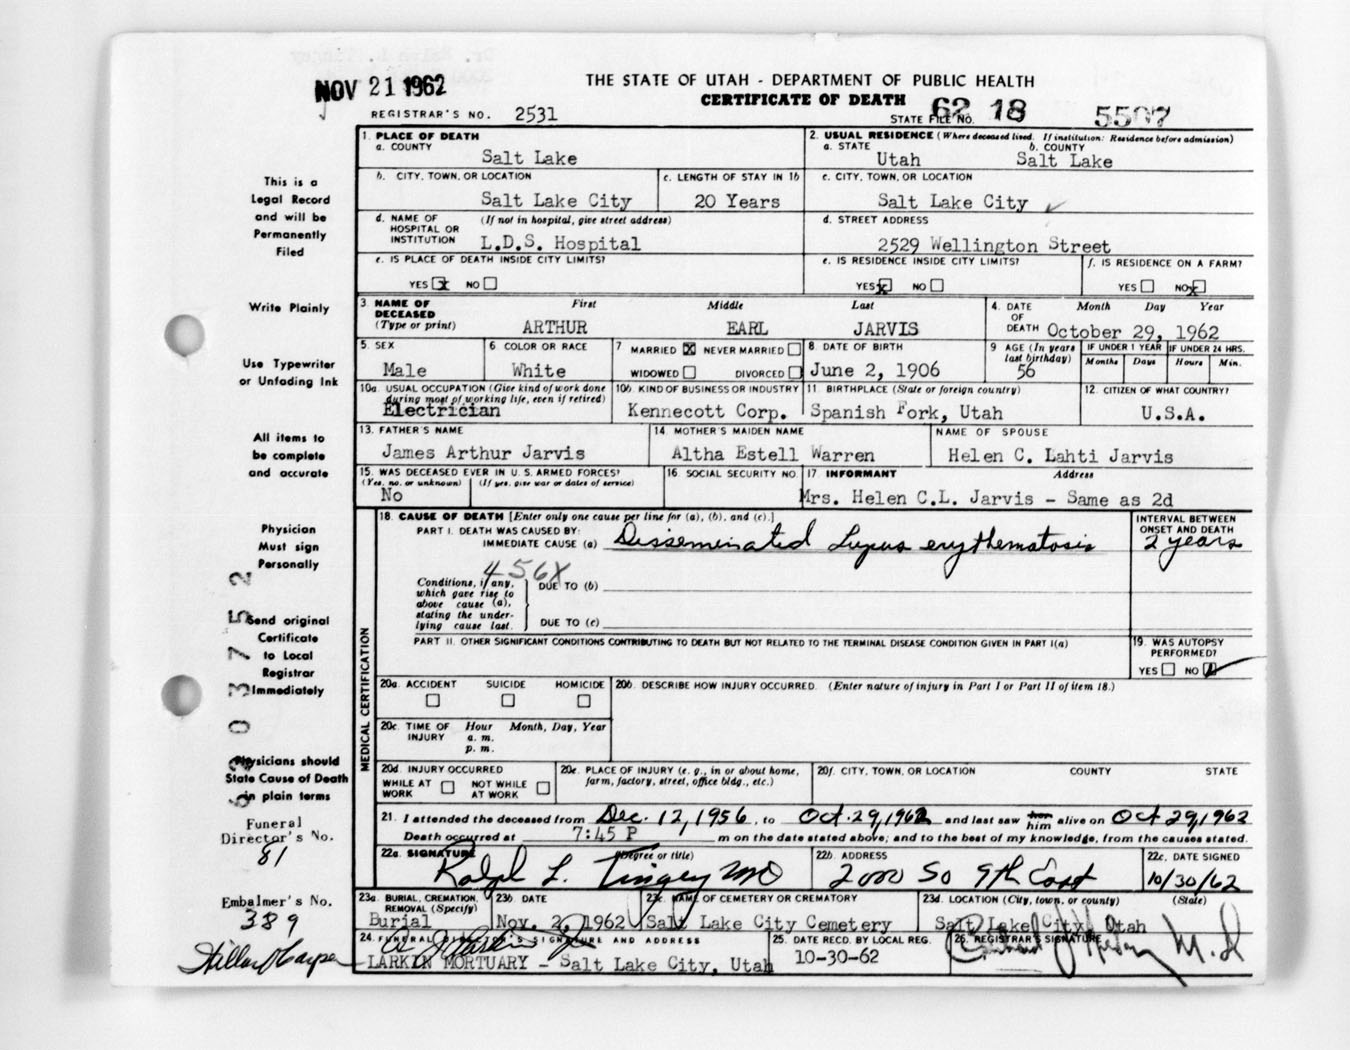 NOV 21 1962
THE STATE OF UTAH - DEPARTMENT OF PUBLIC HEALTH
CERTIFICATE OF DEATH
REGISTRAR'S NO. 2531
STATE FILE NO. 62 18 5507
This is a
Legal Record
and will be
Permanently
Filed
Write Plainly
Use Typewriter
or Unfading Ink
All items to
be complete
and accurate
Physician
Must sign
Personally
Send original
Certificate
to Local
Registrar
Immediately
Physicians should
State Cause of Death
in plain terms
Funeral
Director's No.
81
Embalmer's No.
389
1. PLACE OF DEATH
a. COUNTY
Salt Lake
2. USUAL RESIDENCE (Where deceased lived. If institution: Residence before admission)
a. STATE b. COUNTY
Utah Salt Lake
b. CITY, TOWN, OR LOCATION c. LENGTH OF STAY IN 1b c. CITY, TOWN, OR LOCATION
Salt Lake City 20 Years Salt Lake City
d. NAME OF HOSPITAL OR INSTITUTION (If not in hospital, give street address)
L.D.S. Hospital
d. STREET ADDRESS
2529 Wellington Street
e. IS PLACE OF DEATH INSIDE CITY LIMITS? e. IS RESIDENCE INSIDE CITY LIMITS? f. IS RESIDENCE ON A FARM?
YES x NO YES x NO YES NO x
3. NAME OF DECEASED (Type or print) First Middle Last
ARTHUR EARL JARVIS
4. DATE OF DEATH Month Day Year
October 29, 1962
5. SEX 6. COLOR OR RACE 7 MARRIED x NEVER MARRIED WIDOWED DIVORCED 8. DATE OF BIRTH 9 AGE (In years last birthday) IF UNDER 1 YEAR IF UNDER 24 HRS.
Months Days Hours Min.
Male White June 2, 1906 56
10a. USUAL OCCUPATION (Give kind of work done during most of working life, even if retired) 10b. KIND OF BUSINESS OR INDUSTRY 11. BIRTHPLACE (State or foreign country) 12. CITIZEN OF WHAT COUNTRY?
Electrician Kennecott Corp. Spanish Fork, Utah U.S.A.
13. FATHER'S NAME 14. MOTHER'S MAIDEN NAME NAME OF SPOUSE
James Arthur Jarvis Altha Estell Warren Helen C. Lahti Jarvis
15. WAS DECEASED EVER IN U. S. ARMED FORCES? 16. SOCIAL SECURITY NO. 17. INFORMANT Address
(Yes, no, or unknown) (If yes, give war or dates of service)
No Mrs. Helen C.L. Jarvis - Same as 2d
MEDICAL CERTIFICATION
18. CAUSE OF DEATH [Enter only one cause per line for (a), (b), and (c).] INTERVAL BETWEEN ONSET AND DEATH
PART I. DEATH WAS CAUSED BY:
IMMEDIATE CAUSE (a) Disseminated Lupus erythematosis 2 years
456X
Conditions, if any, which gave rise to above cause (a), stating the underlying cause last.
DUE TO (b)
DUE TO (c)
PART II. OTHER SIGNIFICANT CONDITIONS CONTRIBUTING TO DEATH BUT NOT RELATED TO THE TERMINAL DISEASE CONDITION GIVEN IN PART I(a)
19. WAS AUTOPSY PERFORMED?
YES NO
20a. ACCIDENT SUICIDE HOMICIDE 20b. DESCRIBE HOW INJURY OCCURRED. (Enter nature of injury in Part I or Part II of item 18.)
20c. TIME OF INJURY Hour Month, Day, Year
a. m.
p. m.
20d. INJURY OCCURRED
WHILE AT WORK NOT WHILE AT WORK
20e. PLACE OF INJURY (e. g., in or about home, farm, factory, street, office bldg., etc.)
20f. CITY, TOWN, OR LOCATION COUNTY STATE
21. I attended the deceased from Dec. 12, 1956, to Oct. 29, 1962 and last saw her him alive on Oct 29, 1962
Death occurred at 7:45 P m on the date stated above; and to the best of my knowledge, from the causes stated.
22a. SIGNATURE (Degree or title) 22b. ADDRESS 22c. DATE SIGNED
Ralph L. Tingey MD 2000 So 9th East 10/30/62
23a. BURIAL, CREMATION, REMOVAL (Specify) 23b. DATE 23c. NAME OF CEMETERY OR CREMATORY 23d. LOCATION (City, town, or county) (State)
Burial Nov. 2, 1962 Salt Lake City Cemetery Salt Lake City, Utah
24. FUNERAL DIRECTOR'S SIGNATURE AND ADDRESS 25. DATE RECD. BY LOCAL REG. 26. REGISTRAR'S SIGNATURE
LARKIN MORTUARY - Salt Lake City, Utah 10-30-62
M.D